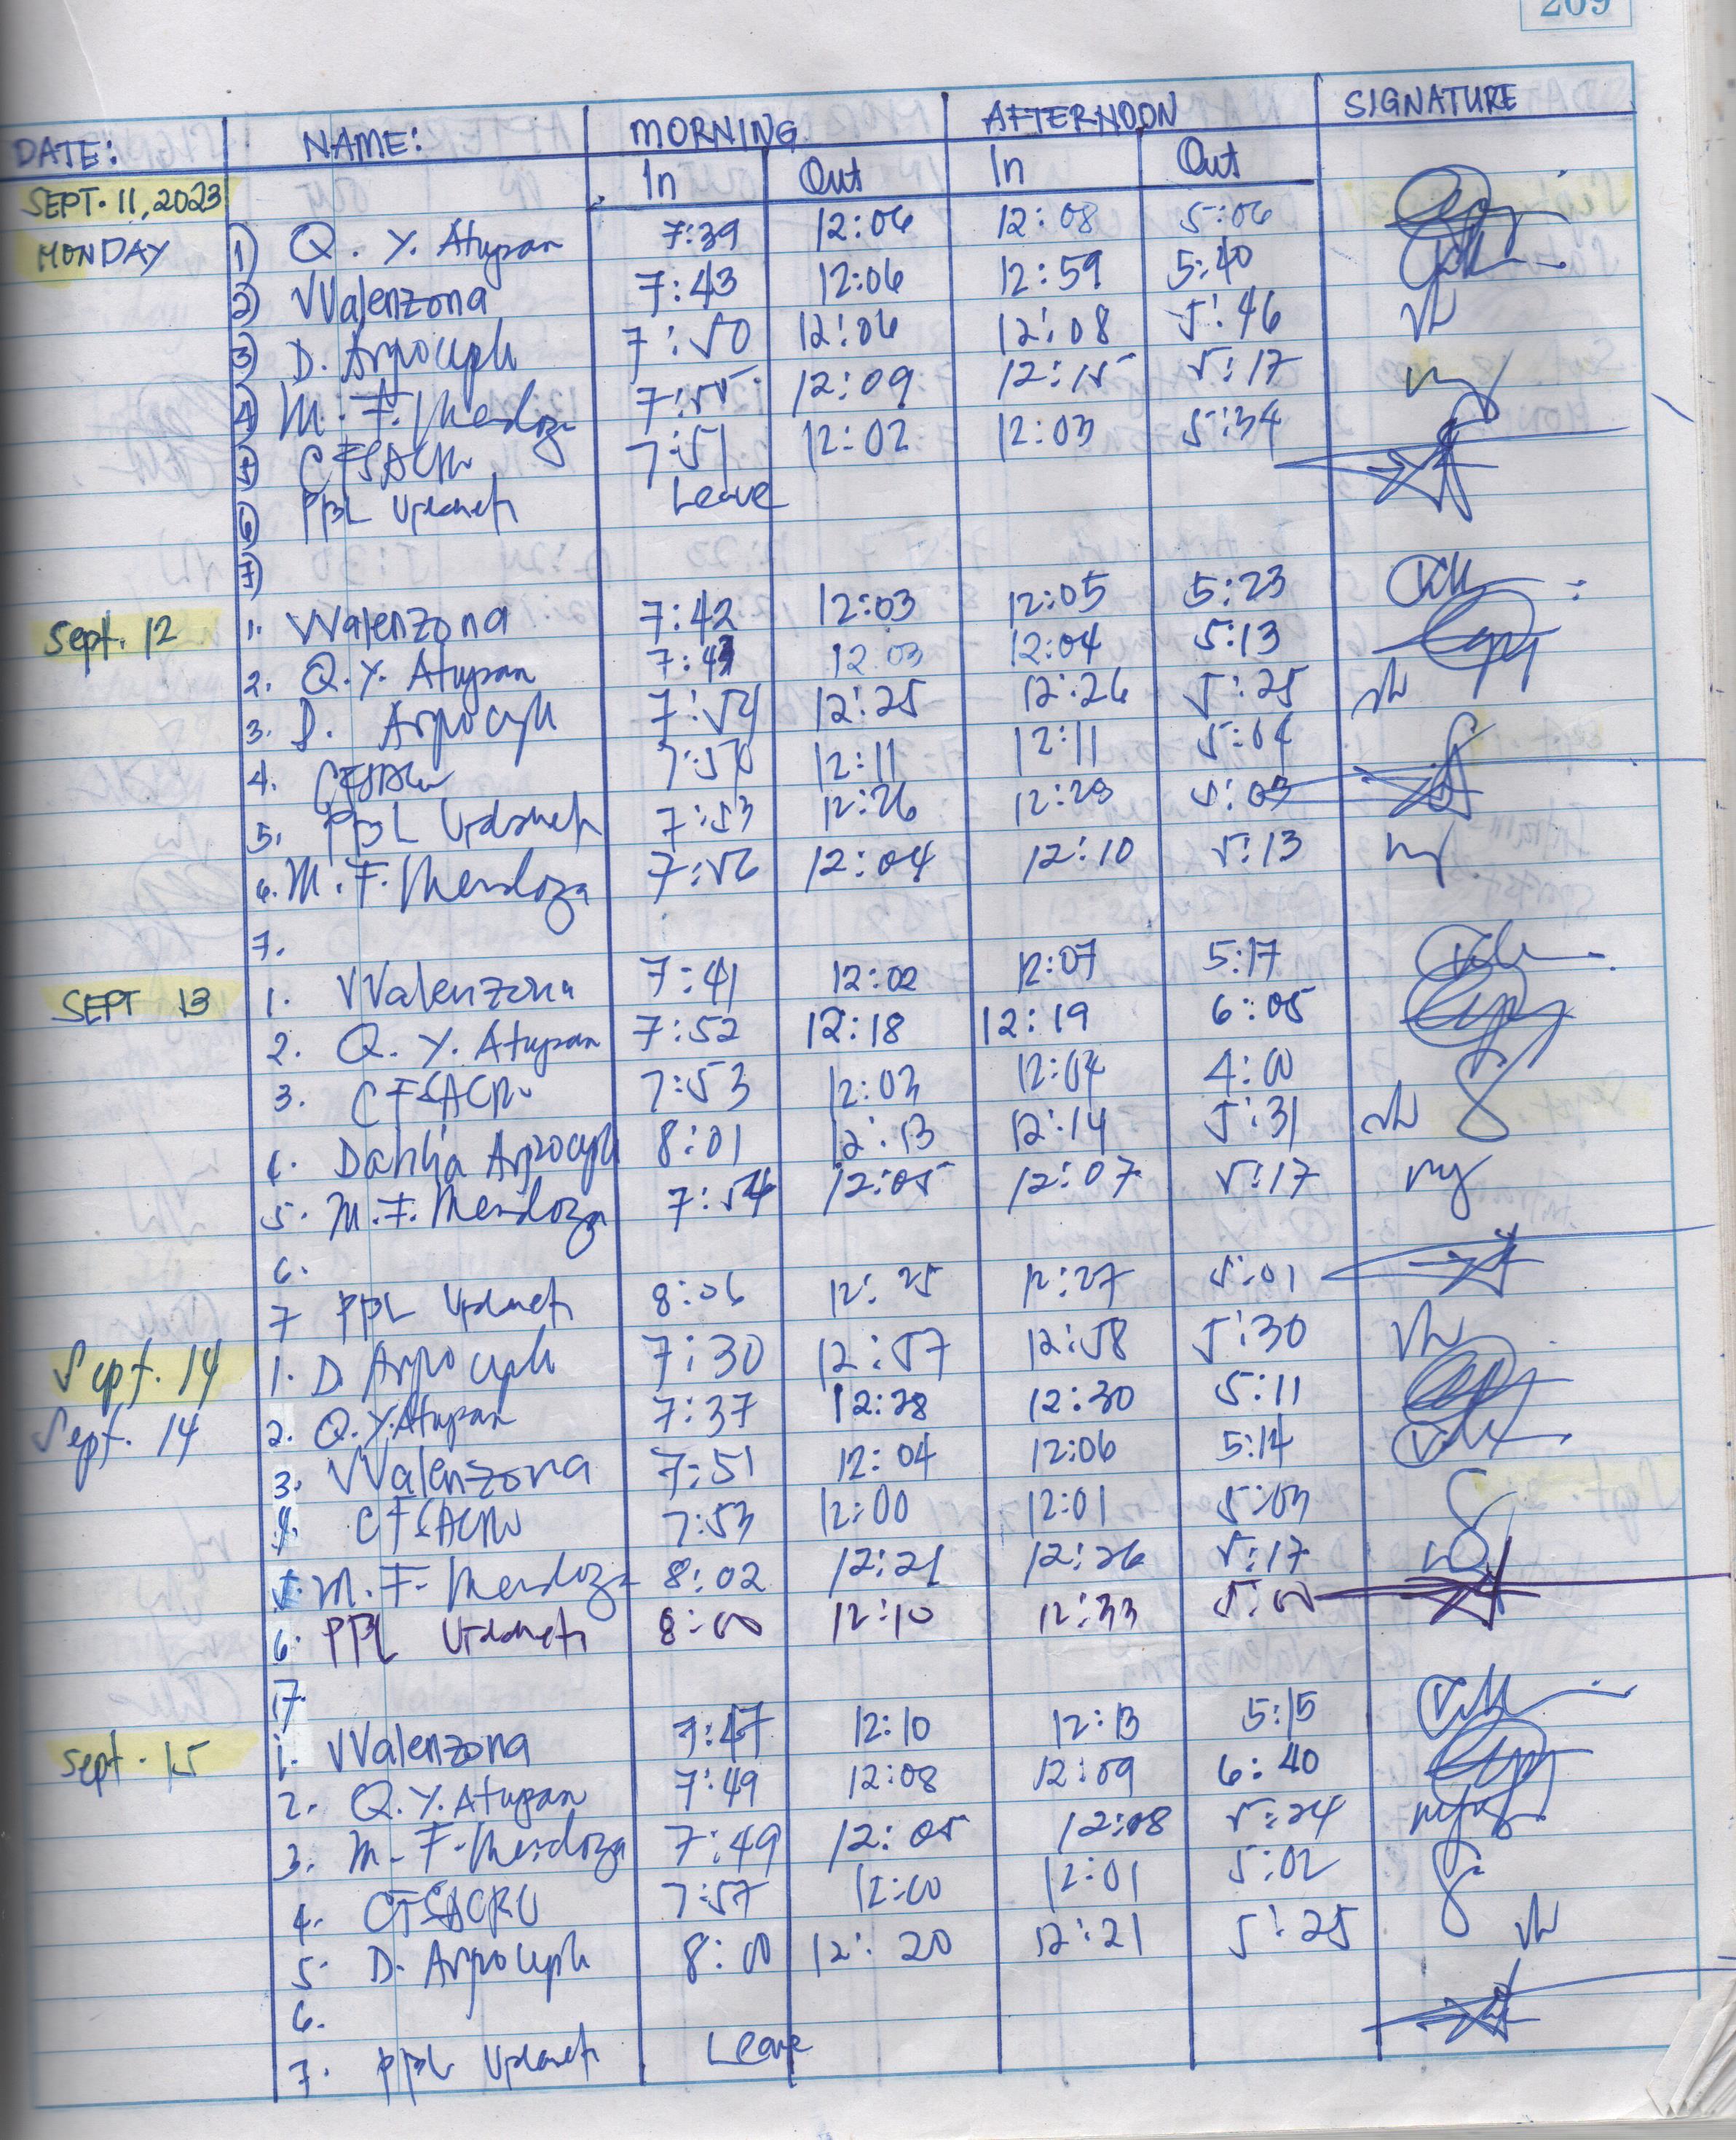 209
DATE: NAME: MORNING AFTERNOON SIGNATURE
In Out In Out
SEPT. 11, 2023
MONDAY 1) Q. Y. Atupan 7:39 12:06 12:08 5:06
2) VValenzona 7:43 12:06 12:59 5:40
3) D. Arpoceph 7:50 12:06 12:08 5:46
4) M. F. Mendoza 7:55 12:09 12:15 5:17
5) CFSACRU 7:51 12:02 12:03 5:34
6) PBL Leave
7)
Sept. 12 1. VValenzona 7:42 12:03 12:05 5:23
2. Q. Y. Atupan 7:43 12:03 12:04 5:13
3. D. Arpoceph 7:54 12:25 12:26 5:25
4. 12:11 12:11 5:04
5. PBL 7:53 12:26 12:28 5:03
6. M. F. Mendoza 7:56 12:04 12:10 5:13
7.
SEPT 13 1. VValenzona 7:41 12:02 12:07 5:17
2. Q. Y. Atupan 7:52 12:18 12:19 6:05
3. CFSACRU 7:53 12:03 12:04 4:00
4. Dahlia Arpoceph 8:01 12:13 12:14 5:31
5. M. F. Mendoza 7:54 12:05 12:07 5:17
6.
7 PBL 8:06 12:25 12:27 5:01
Sept. 14 1. D. Arpoceph 7:30 12:57 12:58 5:30
Sept. 14 2. Q. Y. Atupan 7:37 12:28 12:30 5:11
3. VValenzona 7:51 12:04 12:06 5:14
4. CFSACRU 7:53 12:00 12:01 5:03
5. M. F. Mendoza 8:02 12:21 12:26 5:17
6. PBL 8:00 12:10 12:33 5:00
7.
Sept. 15 1. VValenzona 7:47 12:10 12:13 5:15
2. Q. Y. Atupan 7:49 12:08 12:09 6:40
3. M. F. Mendoza 7:49 12:05 12:08 5:24
4. CFSACRU 7:57 12:00 12:01 5:02
5. D. Arpoceph 8:00 12:20 12:21 5:25
6.
7. PBL Leave